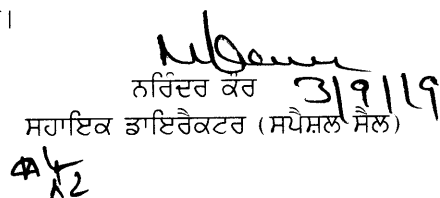 ।
ਨਰਿੰਦਰ ਕੌਰ 3/9/19
ਸਹਾਇਕ ਡਾਇਰੈਕਟਰ (ਸਪੈਸ਼ਲ ਸੈਲ)